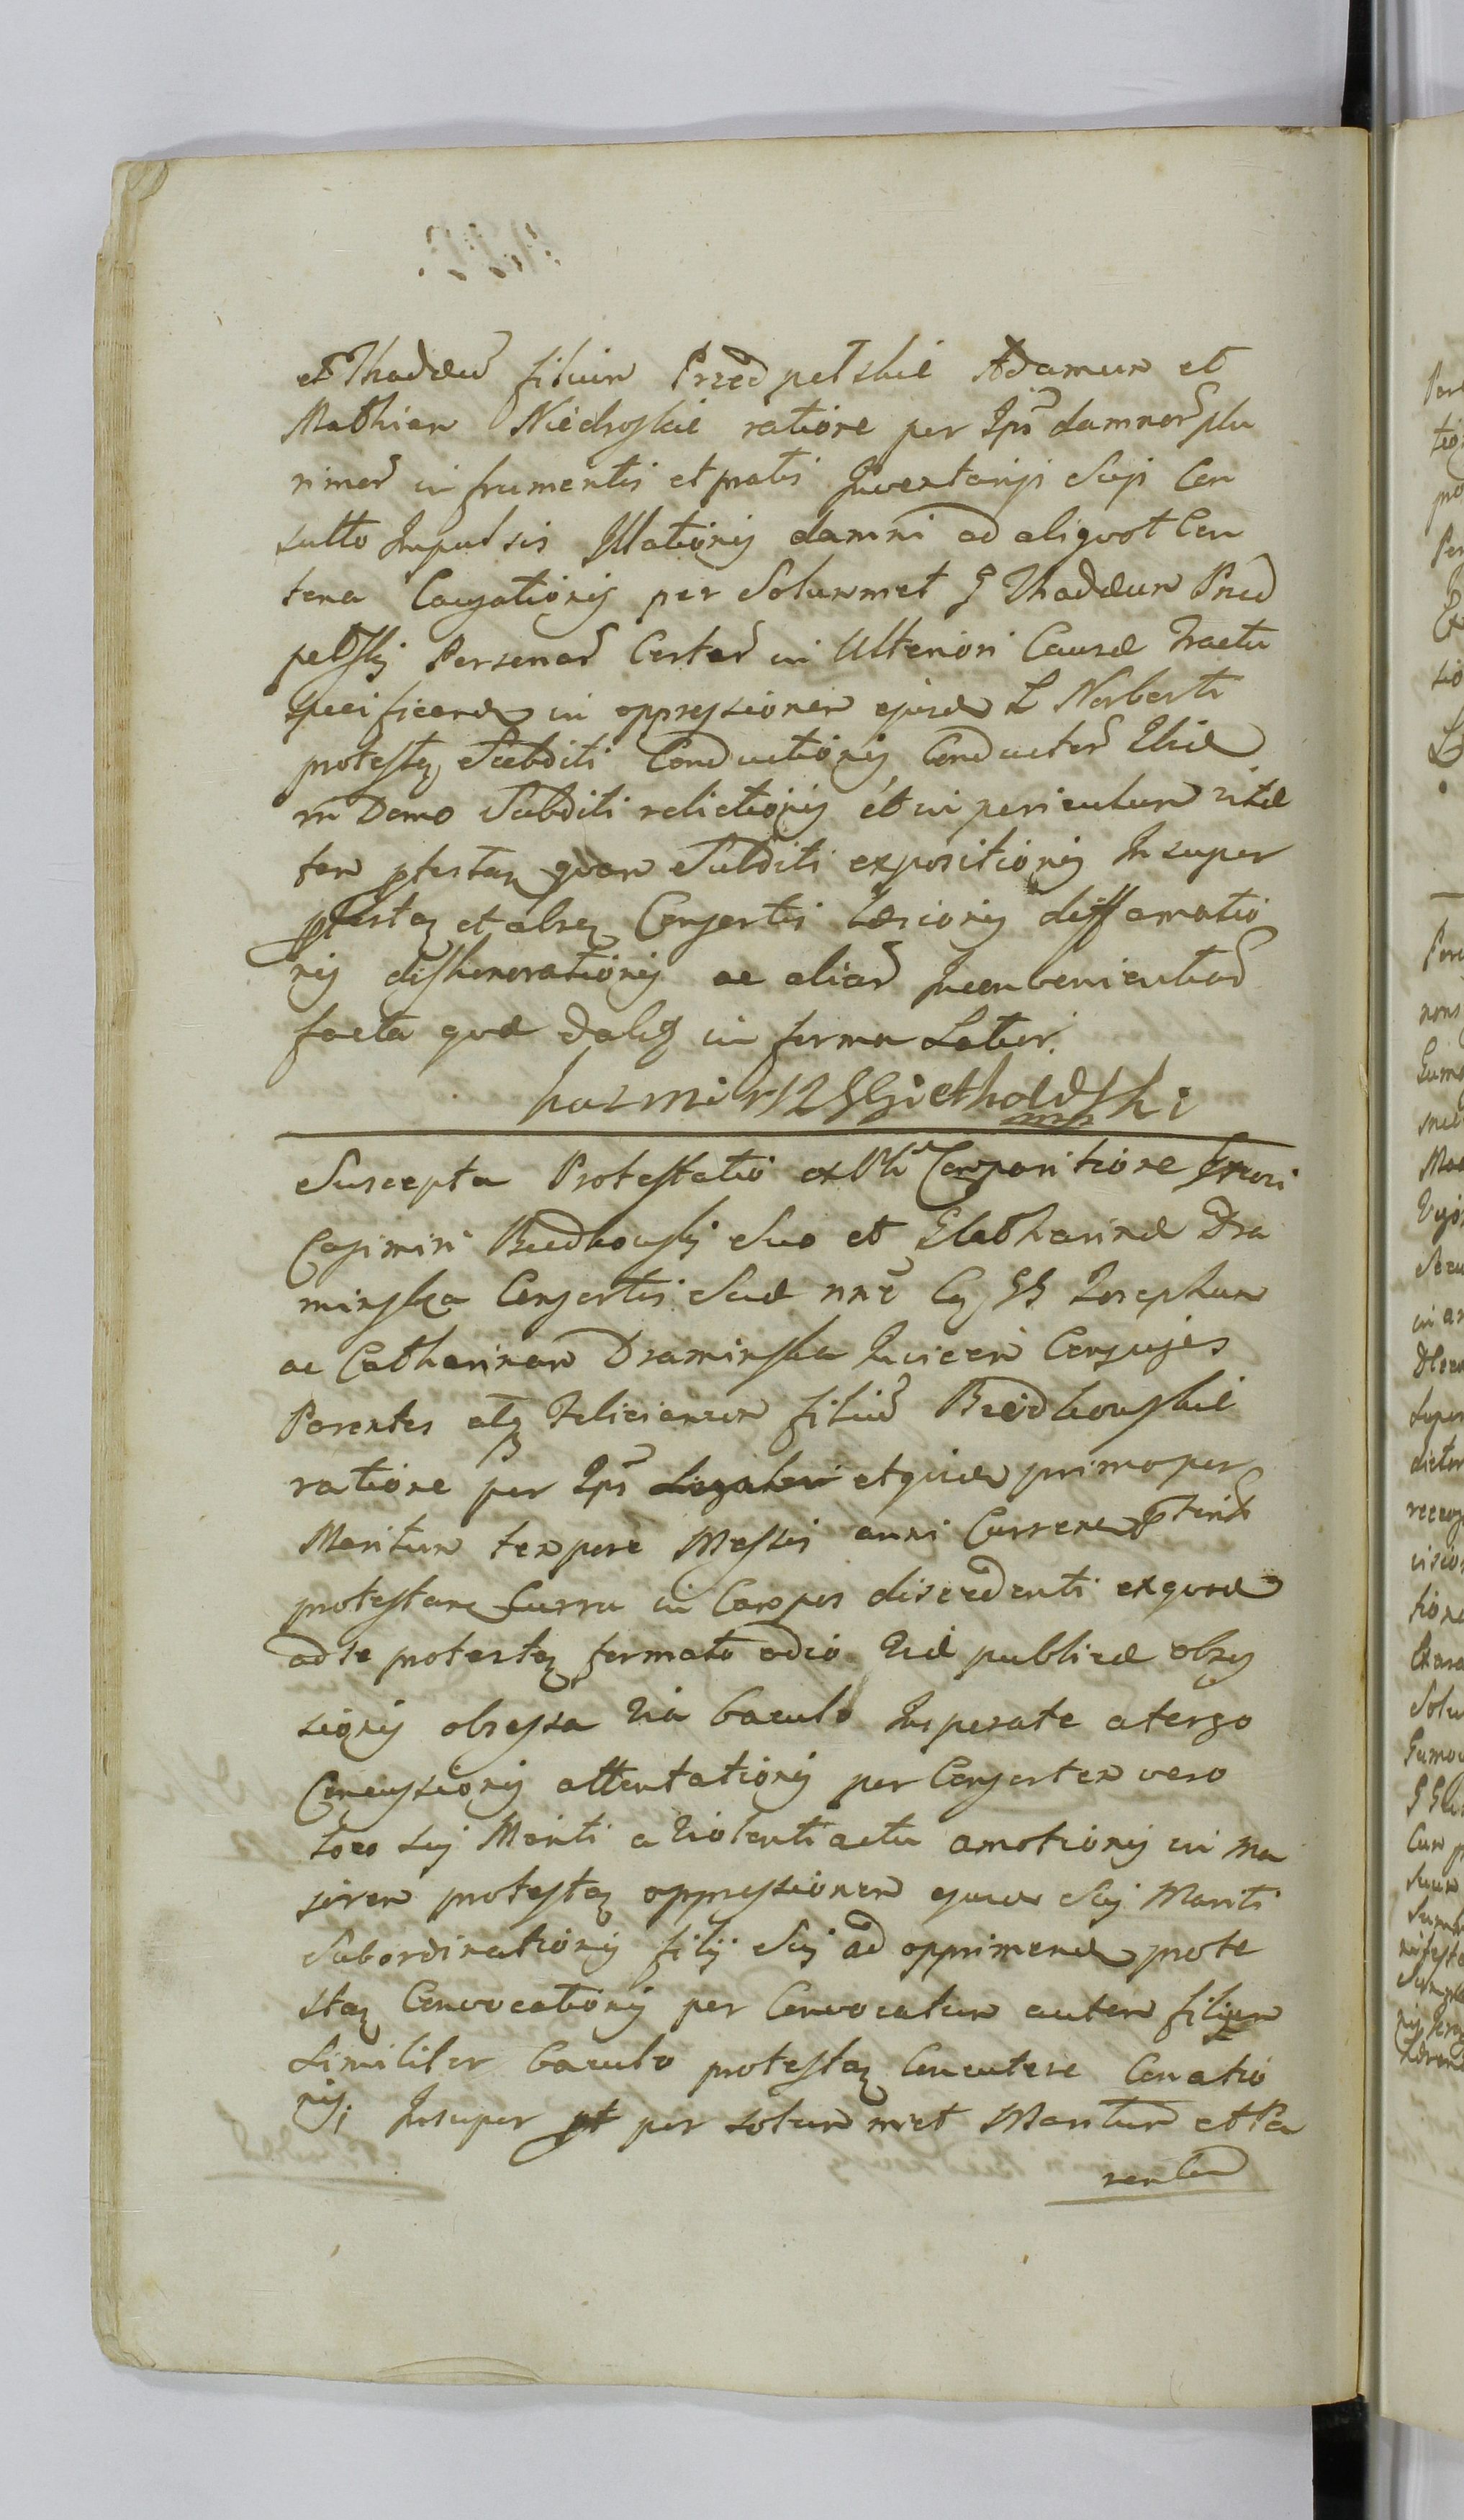 et Thadæũ filium Przedpelskie Adamum et
Mathiam Niedroskie ratione per Ips̃ damnor̃ plu
rimor̃ in frumentis et pratis Inventarÿi Suÿi Con
sulto Impulsis Illationis damni ad aliquot Cen
tena Causationis per Solummet G Thadæum Przed
pelskj Personar̃ Certar̃ in Ulteriori Causæ tractu
specificand in oppressionem ejusd L Norberti
protestaq Subditi Conductionis Conductor̃ Ibid
in Domo Subditi relictionis et in periculum vitæ
tam ptestaq quam Subditi expositionis Insuper
ptestaq et absq Consortis Læsionis diffamatio
nis dishonorationis ac aliar̃ Inconvenientiar̃
facta quæ Salq in forma Latior.
kazmirsz Giethold ski
mp
Suscepta Protestatio ex Pli Comparitione Gnrosi
Casimiri Biedkowskj Suo et Catharinæ Dra
minska Consortis Suæ nne Cq GG Josephum
ac Catharinam Draminska Invicem Conjuges
Parentes atq Felicianum filiũ Biedkowskie
ratione per Ips̃ et quid primo per
Maritum tempore Messis anni Curren ptenti
protestan Curru in Campos discedenti exquod
ad se protestaq formato odio Viæ publicæ obses
sionis obsessa Via baculo Insperate a tergo
Concussionis attentationis per Consortem vero
loco suj Mariti a Violenti actu amotionis in ma
jorem protestaq oppressionem ejusd Suj Mariti
Subordinationis filÿ Suj ad opprimend prote
staq Convocationis per Convocatum autem filium
Similiter baculo protestaq Concutere Conatio
nis; Insuper pt per solum met Maritum et Pa
rentem